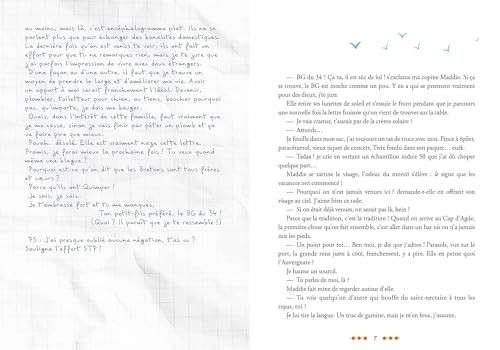 au moins, mais là, c'est encéphalogramme plat. Ils ne se
parlent plus que pour échanger des banalités domestiques.
La dernière fois qu'on est venus te voir, ils ont fait un
effort pour que tu ne remarques rien, mais je te jure que
j'ai parfois l'impression de vivre avec deux étrangers.
D'une façon ou d'une autre, il faut que je trouve un
moyen de prendre le large et d'améliorer ma vie. Avoir
un appart à moi serait franchement l'idéal. Devenir,
plombier, toiletteur pour chien, ou tiens, boucher pourquoi
pas, qu'importe, je dois me bouger.
Quais, dans l'intérêt de cette famille, faut vraiment que
je me casse, sinon je vais finir par péter un plomb et ça
va faire pire que mieux.
Pouah... désolé. Elle est vraiment naze cette lettre.
Promis, je ferai mieux la prochaine fois ! Tu veux quand
même une blague ?
Pourquoi est-ce qu'on dit que les Bretons sont tous frères
et sœurs ?
Parce qu'ils ont Quimper !
Je sais, je sais.
Je t'embrasse fort et tu me manques,
Ton petit-fils préféré, le BG du 34 !
(Quoi ? Il paraît que je te ressemble !)
PS : J'ai presque oublié aucune négation, t'as vu ?
Souligne l'effort STP !
— BG du 34 ! Ça va, il est sûr de lui ! s'exclame ma copine Maddie. Si ça
se trouve, le BG est moche comme un pou. Y en a qui se prennent vraiment
pour des dieux, j'te jure.
Elle retire ses lunettes de soleil et s'essuie le front pendant que je parcours
une nouvelle fois la lettre froissée qu'on vient de trouver sur la table.
— Je vais cramer, t'aurais pas de la crème solaire ?
— Attends…
Je fouille dans mon sac, j'ai toujours un tas de trucs avec moi. Pince à épiler,
paracétamol, vieux tiquet de concert, Twix fondu dans son paquet… eurk.
— Tadan ! Je crie en sortant un échantillon indice 50 que j'ai dû choper
quelque part…
Maddie se tartine le visage, l'odeur du monoï s'élève : le signe que les
vacances ont commencé !
— Pourquoi on n'est jamais venues ici ? demande-t-elle en offrant son
visage au ciel. J'aime bien ce rade.
— Si on était déjà venues, on serait pas là, hein !
Parce que la tradition, c'est la tradition ! Quand on arrive au Cap d'Agde,
la première chose qu'on fait ensemble, c'est aller dans un bar où on n'a jamais
mis les pieds.
— Un point pour toi… Ben moi, je dis que j'adore ! Parasols, vue sur le
port, la grande roue juste à côté, franchement, y a pire. Elle en pense quoi
l'Auvergnate ?
Je hausse un sourcil.
— Tu parles de moi, là ?
Maddie fait mine de regarder autour d'elle.
— Ta vois quelqu'un d'autre qui bouffe du saint-nectaire à tous les
repas, toi ?
Je lui tire la langue. Un truc de gamine, mais je m'en fous, j'assume.
7